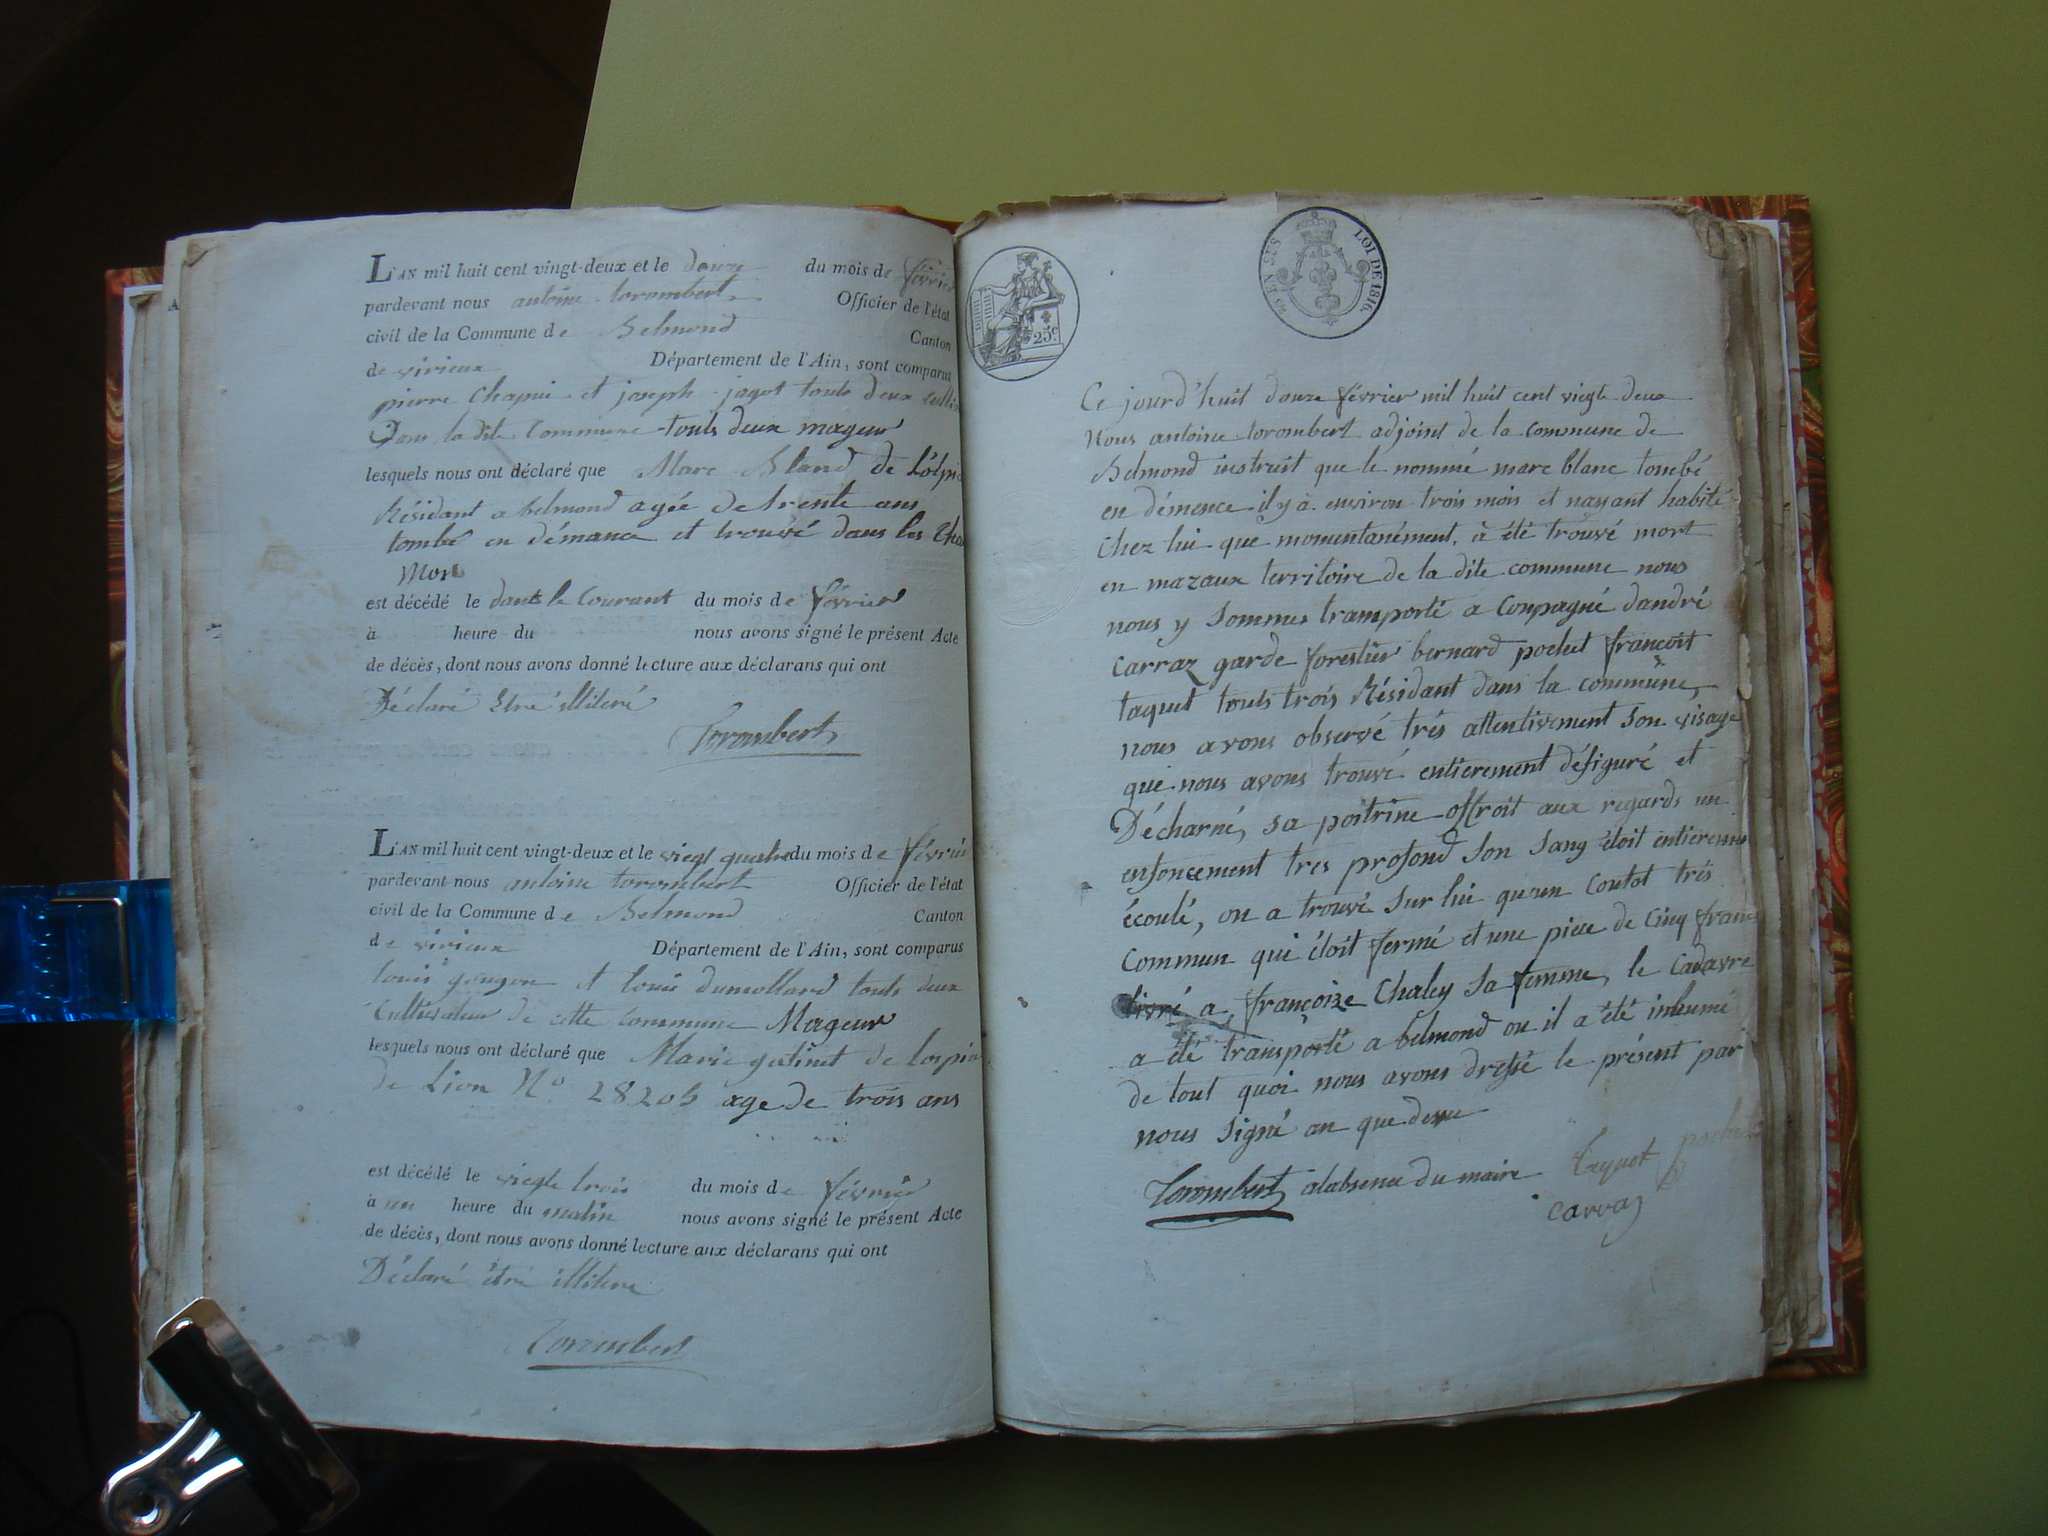 L'AN mil huit cent vingt-deux et le douze du mois de février
pardevant nous antoine torombert Officier de l'état
civil de la Commune de Belmond Canton
de virieux Département de l'Ain, sont comparus
pierre Chapui et joseph jagot touts deux
Dans la dite Commune touts deux mageur
lesquels nous ont déclaré que Marc Bland de
Résidant a belmond agée de trente ans
tombé en démance et trouvé dans les
Mort
est décédé le dans le Courant du mois de février
à heure du nous avons signé le présent Acte
de décès, dont nous avons donné lecture aux déclarans qui ont
Déclaré Etre illiteré
Torombert
L'AN mil huit cent vingt-deux et le vingt quatre du mois de février
pardevant nous antoine torombert Officier de l'état
civil de la Commune de Belmond Canton
de virieux Département de l'Ain, sont comparus
louis gougon et louis dumollard touts deux
Cultivateur de cette commune Mageur
lesquels nous ont déclaré que Marie gatinet de
de Lion No 28205 age de trois ans
est décédé le viegt trois du mois de février
à un heure du matin nous avons signé le présent Acte
de décès, dont nous avons donné lecture aux déclarans qui ont
Déclaré étre illitere
Torombert
25c
LOI DE 1816.
Ce jourd'huit douze février mil huit cent viegt deux
Nous antoine torombert adjoint de la commune de
Belmond instruit que le nommé marc blanc tombé
en démence il y a environ trois mois et nayant habité
Chez lui que momentanément, à été trouvé mort
en mazaux territoire de la dite commune nous
nous y sommes transporté a Conpagné dandré
Carraz garde forestier bernard pochet françoit
taquet touts trois Résidant dans la commune,
nous avons observé trés attentivement son visage
que nous avons trouvé entierement défiguré et
Décharné, sa poitrine offroit aux regards un
enfoncement tres profond son sang étoit entierement
écoulé, on a trouvé sur lui qu'un Coutot trés
Commun qui étoit fermé et une piece de Cinq franc
livré a françoize Chaley sa femme, le cadavre
a été transporté a belmond ou il a été inhumé
de tout quoi nous avons dressé le présent par
nous signé an que desu
Torombert alabsence du maire taquet pochet
carraz